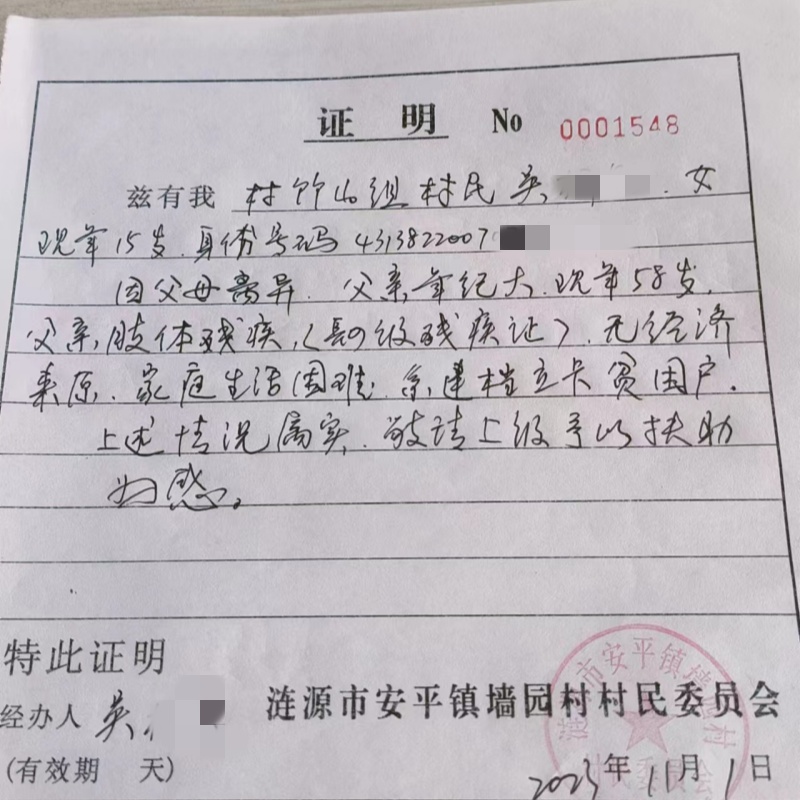 证 明 No 0001548
兹有我 村竹山组村民吴 . 女
现年15岁.身份号码4313822007
因父母离异.父亲年纪大.现年58岁.
父亲,肢体残疾,( 级残疾证).无经济
来源.家庭生活困难.系建档立卡贫困户.
上述情况属实.敬请上级予以扶助
为感。
特此证明
经办人 吴
涟源市安平镇墙园村村民委员会
(有效期 天)
2023年11月1日